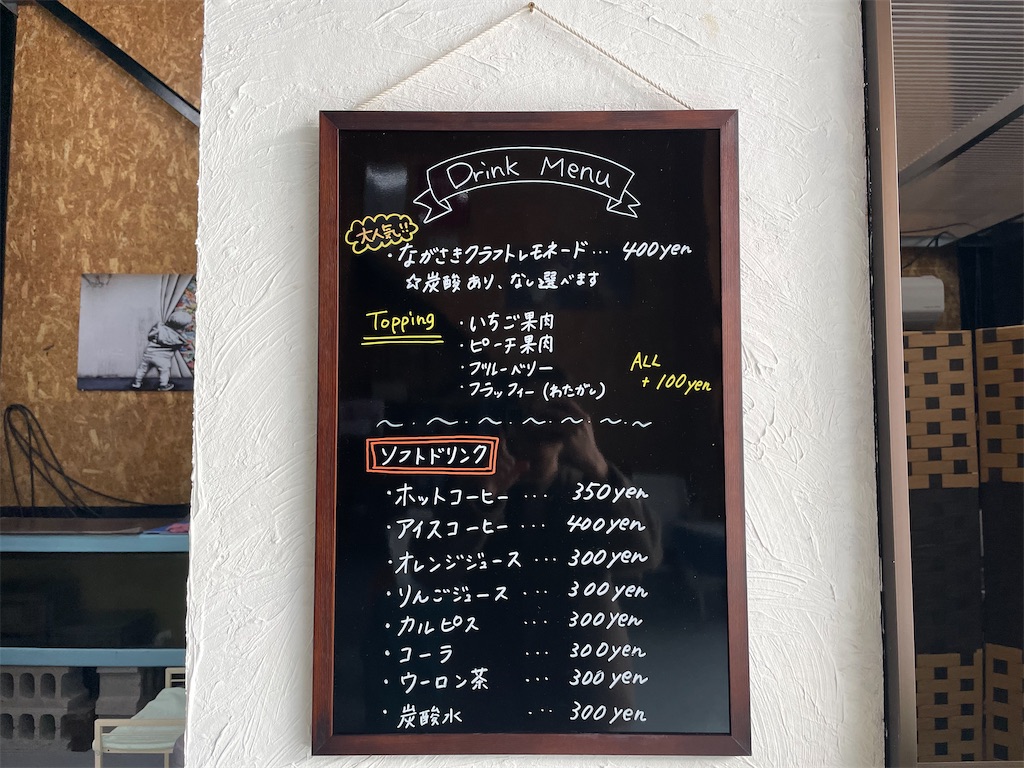 Drink Menu
大人気!!
・ながさきクラフトレモネード… 400yen
☆炭酸あり、なし選べます
Topping
・いちご果肉
・ピーチ果肉
・ブルーベリー
・フラッフィー(わたがし)
ALL
+100yen
〜・〜・〜・〜・〜・〜・〜
ソフトドリンク
・ホットコーヒー … 350yen
・アイスコーヒー … 400yen
・オレンジジュース … 300yen
・りんごジュース … 300yen
・カルピス … 300yen
・コーラ … 300yen
・ウーロン茶 … 300yen
・炭酸水 … 300yen